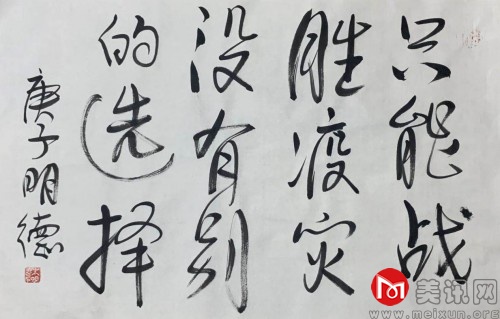 只能战
胜疫灾
没有别
的选择
庚子明德
美讯网
www.meixun.org